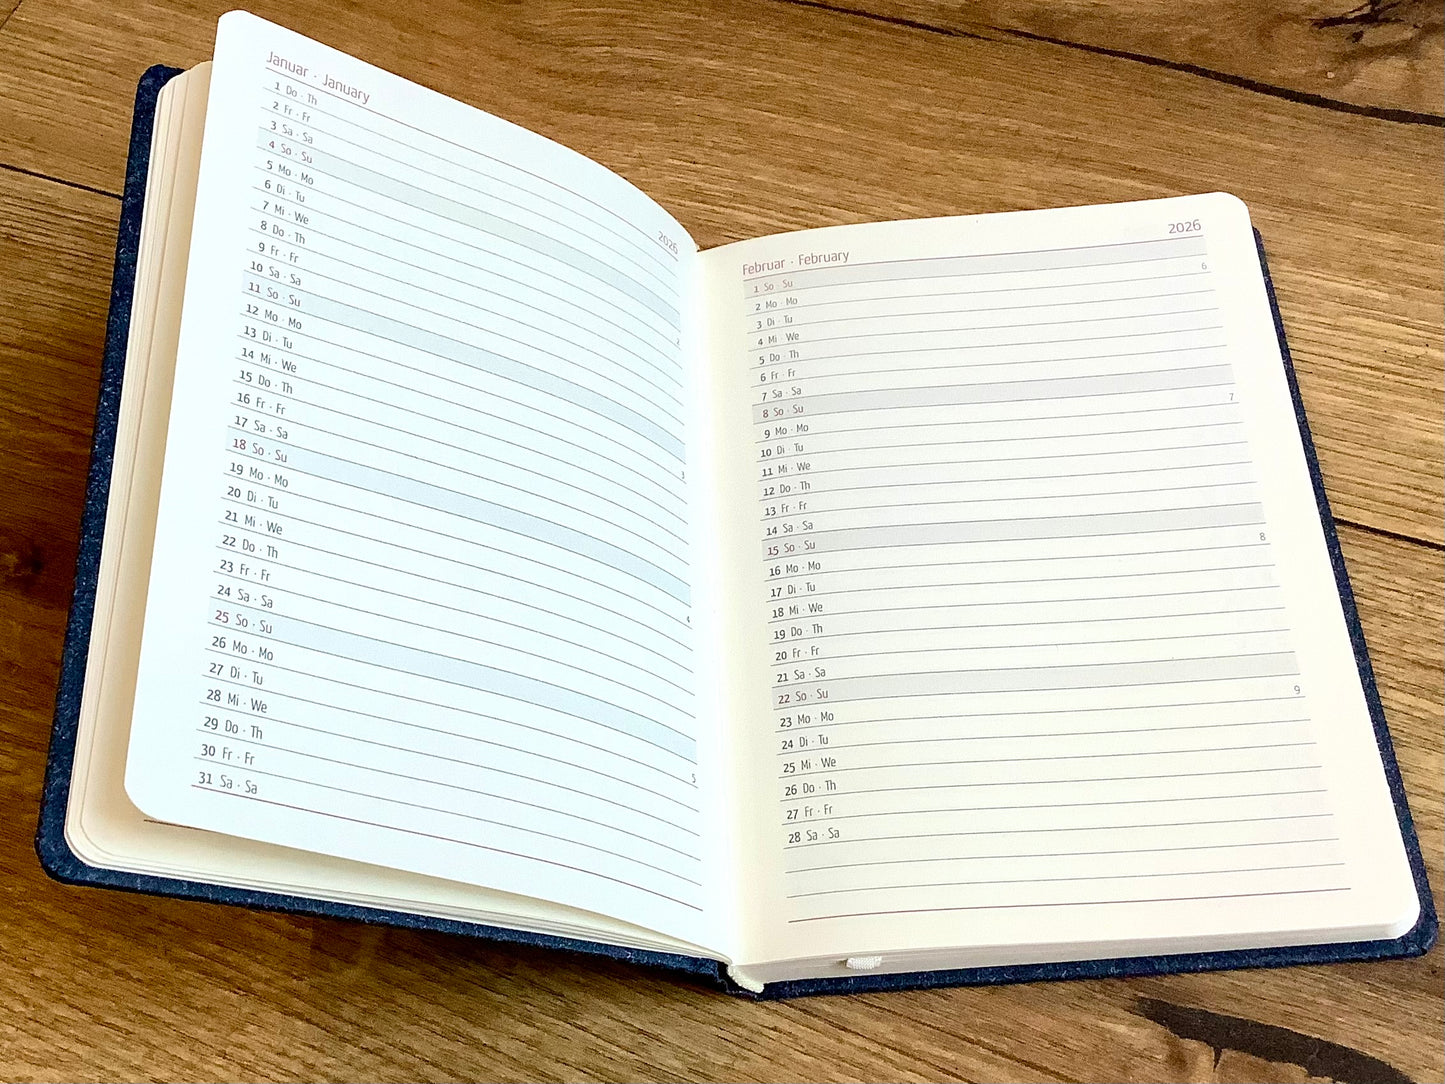 Januar · January 2026
1 Do · Th
2 Fr · Fr
3 Sa · Sa
4 So · Su
5 Mo · Mo 2
6 Di · Tu
7 Mi · We
8 Do · Th
9 Fr · Fr
10 Sa · Sa
11 So · Su
12 Mo · Mo 3
13 Di · Tu
14 Mi · We
15 Do · Th
16 Fr · Fr
17 Sa · Sa
18 So · Su
19 Mo · Mo 4
20 Di · Tu
21 Mi · We
22 Do · Th
23 Fr · Fr
24 Sa · Sa
25 So · Su
26 Mo · Mo 5
27 Di · Tu
28 Mi · We
29 Do · Th
30 Fr · Fr
31 Sa · Sa
Februar · February 2026
1 So · Su
2 Mo · Mo 6
3 Di · Tu
4 Mi · We
5 Do · Th
6 Fr · Fr
7 Sa · Sa
8 So · Su
9 Mo · Mo 7
10 Di · Tu
11 Mi · We
12 Do · Th
13 Fr · Fr
14 Sa · Sa
15 So · Su
16 Mo · Mo 8
17 Di · Tu
18 Mi · We
19 Do · Th
20 Fr · Fr
21 Sa · Sa
22 So · Su
23 Mo · Mo 9
24 Di · Tu
25 Mi · We
26 Do · Th
27 Fr · Fr
28 Sa · Sa